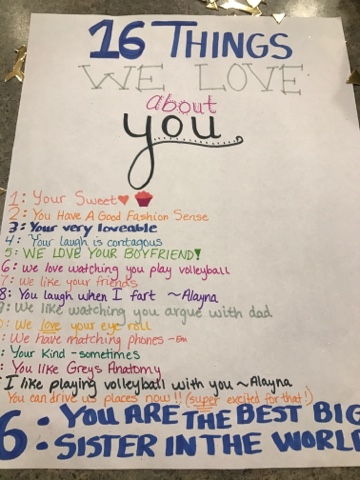 16 THINGS
WE LOVE
about
you
1: Your Sweet
2: You Have A Good Fashion Sense
3: Your very loveable
4: Your laugh is contagous
5: WE LOVE YOUR BOYFRIEND!
6: we love watching you play volleyball
7: we like your friends
8: You laugh when I fart ~Alayna
9: We like watching you argue with dad
0: We love your eye roll
: We have matching phones -Em
: Your Kind -sometimes
: You like Greys Anatomy
: I like playing volleyball with you ~Alayna
You can drive us places now!! (super excited for that!)
6: YOU ARE THE BEST BIG
SISTER IN THE WORLD